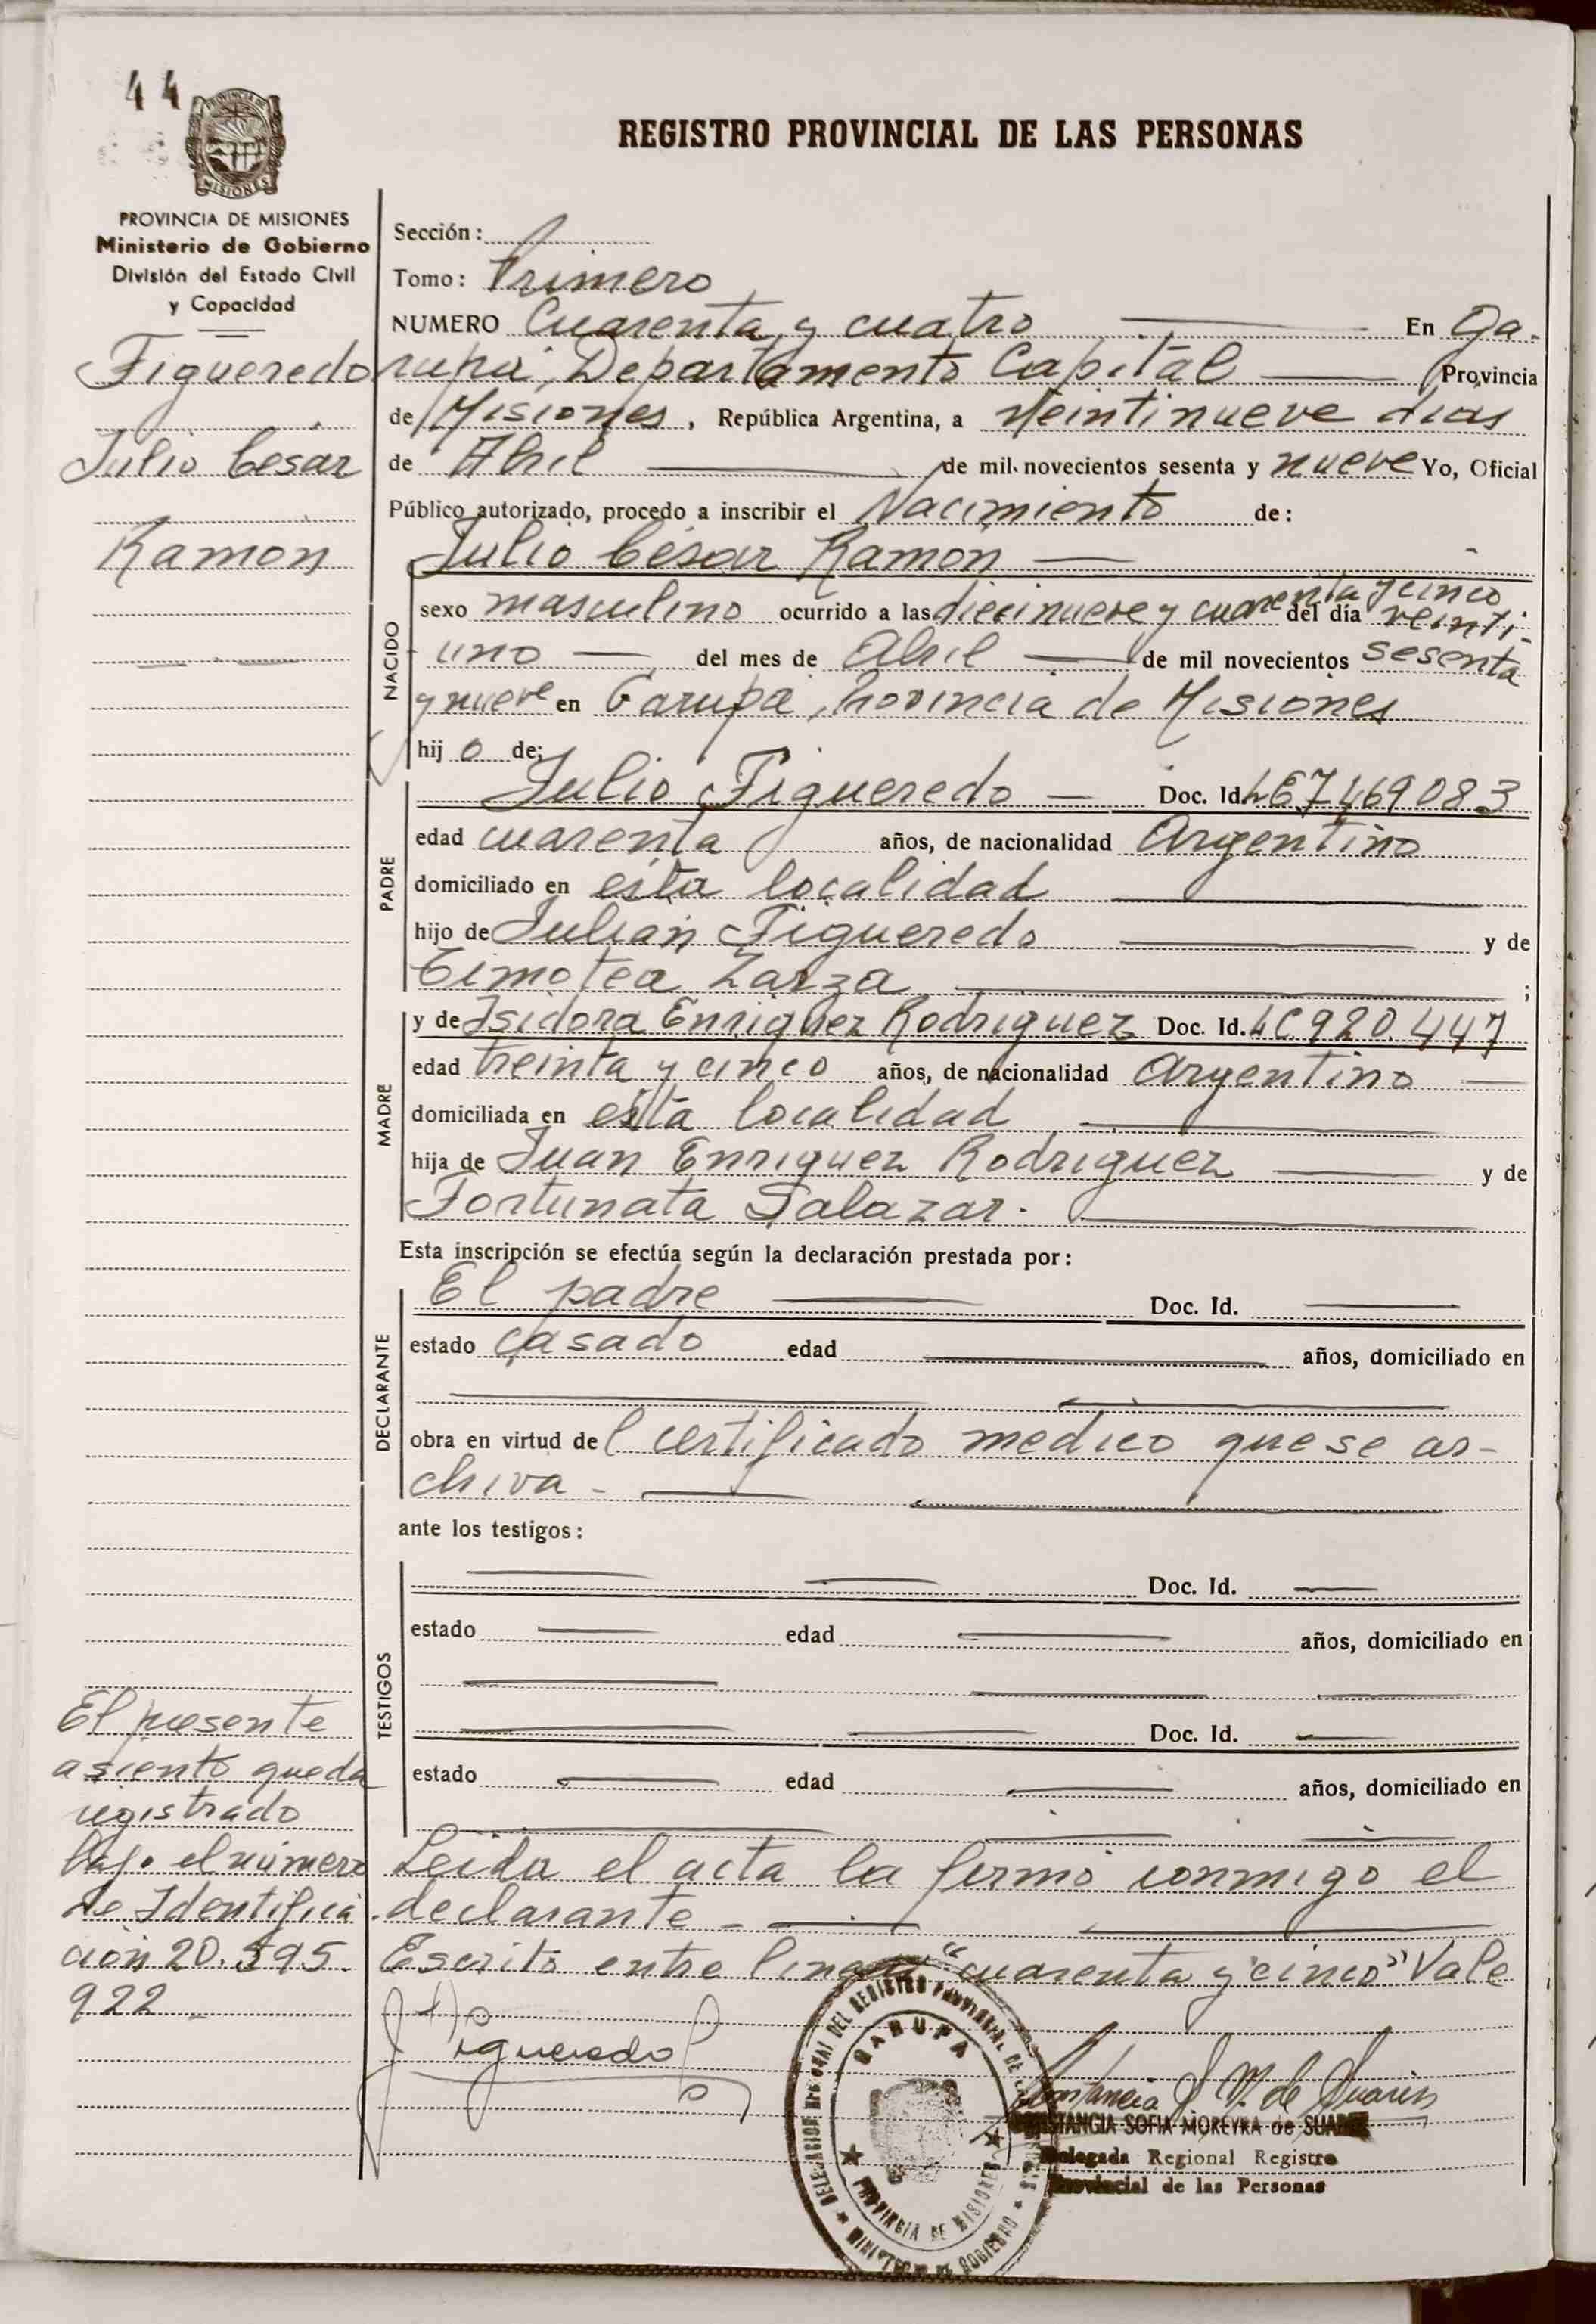 44
PROVINCIA DE
MISIONES
REGISTRO PROVINCIAL DE LAS PERSONAS
PROVINCIA DE MISIONES
Ministerio de Gobierno
División del Estado Civil
y Capacidad
Figueredo
Julio César
Ramón
Sección:
Tomo: Primero
NUMERO Cuarenta y cuatro En Ga-
rupá, Departamento Capital Provincia
de Misiones, República Argentina, a Veintinueve días
de Abril de mil novecientos sesenta y nueve Yo, Oficial
Público autorizado, procedo a inscribir el Nacimiento de:
Julio César Ramón
NACIDO
sexo masculino ocurrido a las diecinueve y cuarenta y cinco del día veinti-
uno del mes de Abril de mil novecientos sesenta
y nueve en Garupá, Provincia de Misiones
hijo de:
PADRE
Julio Figueredo Doc. Id. LE7469083
edad cuarenta años, de nacionalidad Argentino
domiciliado en esta localidad
hijo de Julián Figueredo y de
Timotea Zarza ;
MADRE
y de Isidora Enriquez Rodriguez Doc. Id. LC920.447
edad treinta y cinco años, de nacionalidad Argentino
domiciliada en esta localidad
hija de Juan Enriquez Rodriguez y de
Fortunata Salazar.
Esta inscripción se efectúa según la declaración prestada por:
DECLARANTE
El padre Doc. Id.
estado casado edad años, domiciliado en
obra en virtud del certificado medico que se ar-
chiva -
ante los testigos:
TESTIGOS
Doc. Id.
estado edad años, domiciliado en
Doc. Id.
estado edad años, domiciliado en
Leida el acta la firmó conmigo el
declarante -
Escrito entre lineas "cuarenta y cinco" Vale
El presente
asiento queda
registrado
bajo el número
de Identifica-
ción 20.595.
922
Figueredo
Constancia S. M. de Suarez
CONSTANCIA SOFIA MOREYRA de SUAREZ
Delegada Regional Registro
Provincial de las Personas
DELEGACION REGIONAL DEL REGISTRO PROVINCIAL DE LAS
GARUPA
PROVINCIA DE MISIONES
MINISTERIO DE GOBIERNO